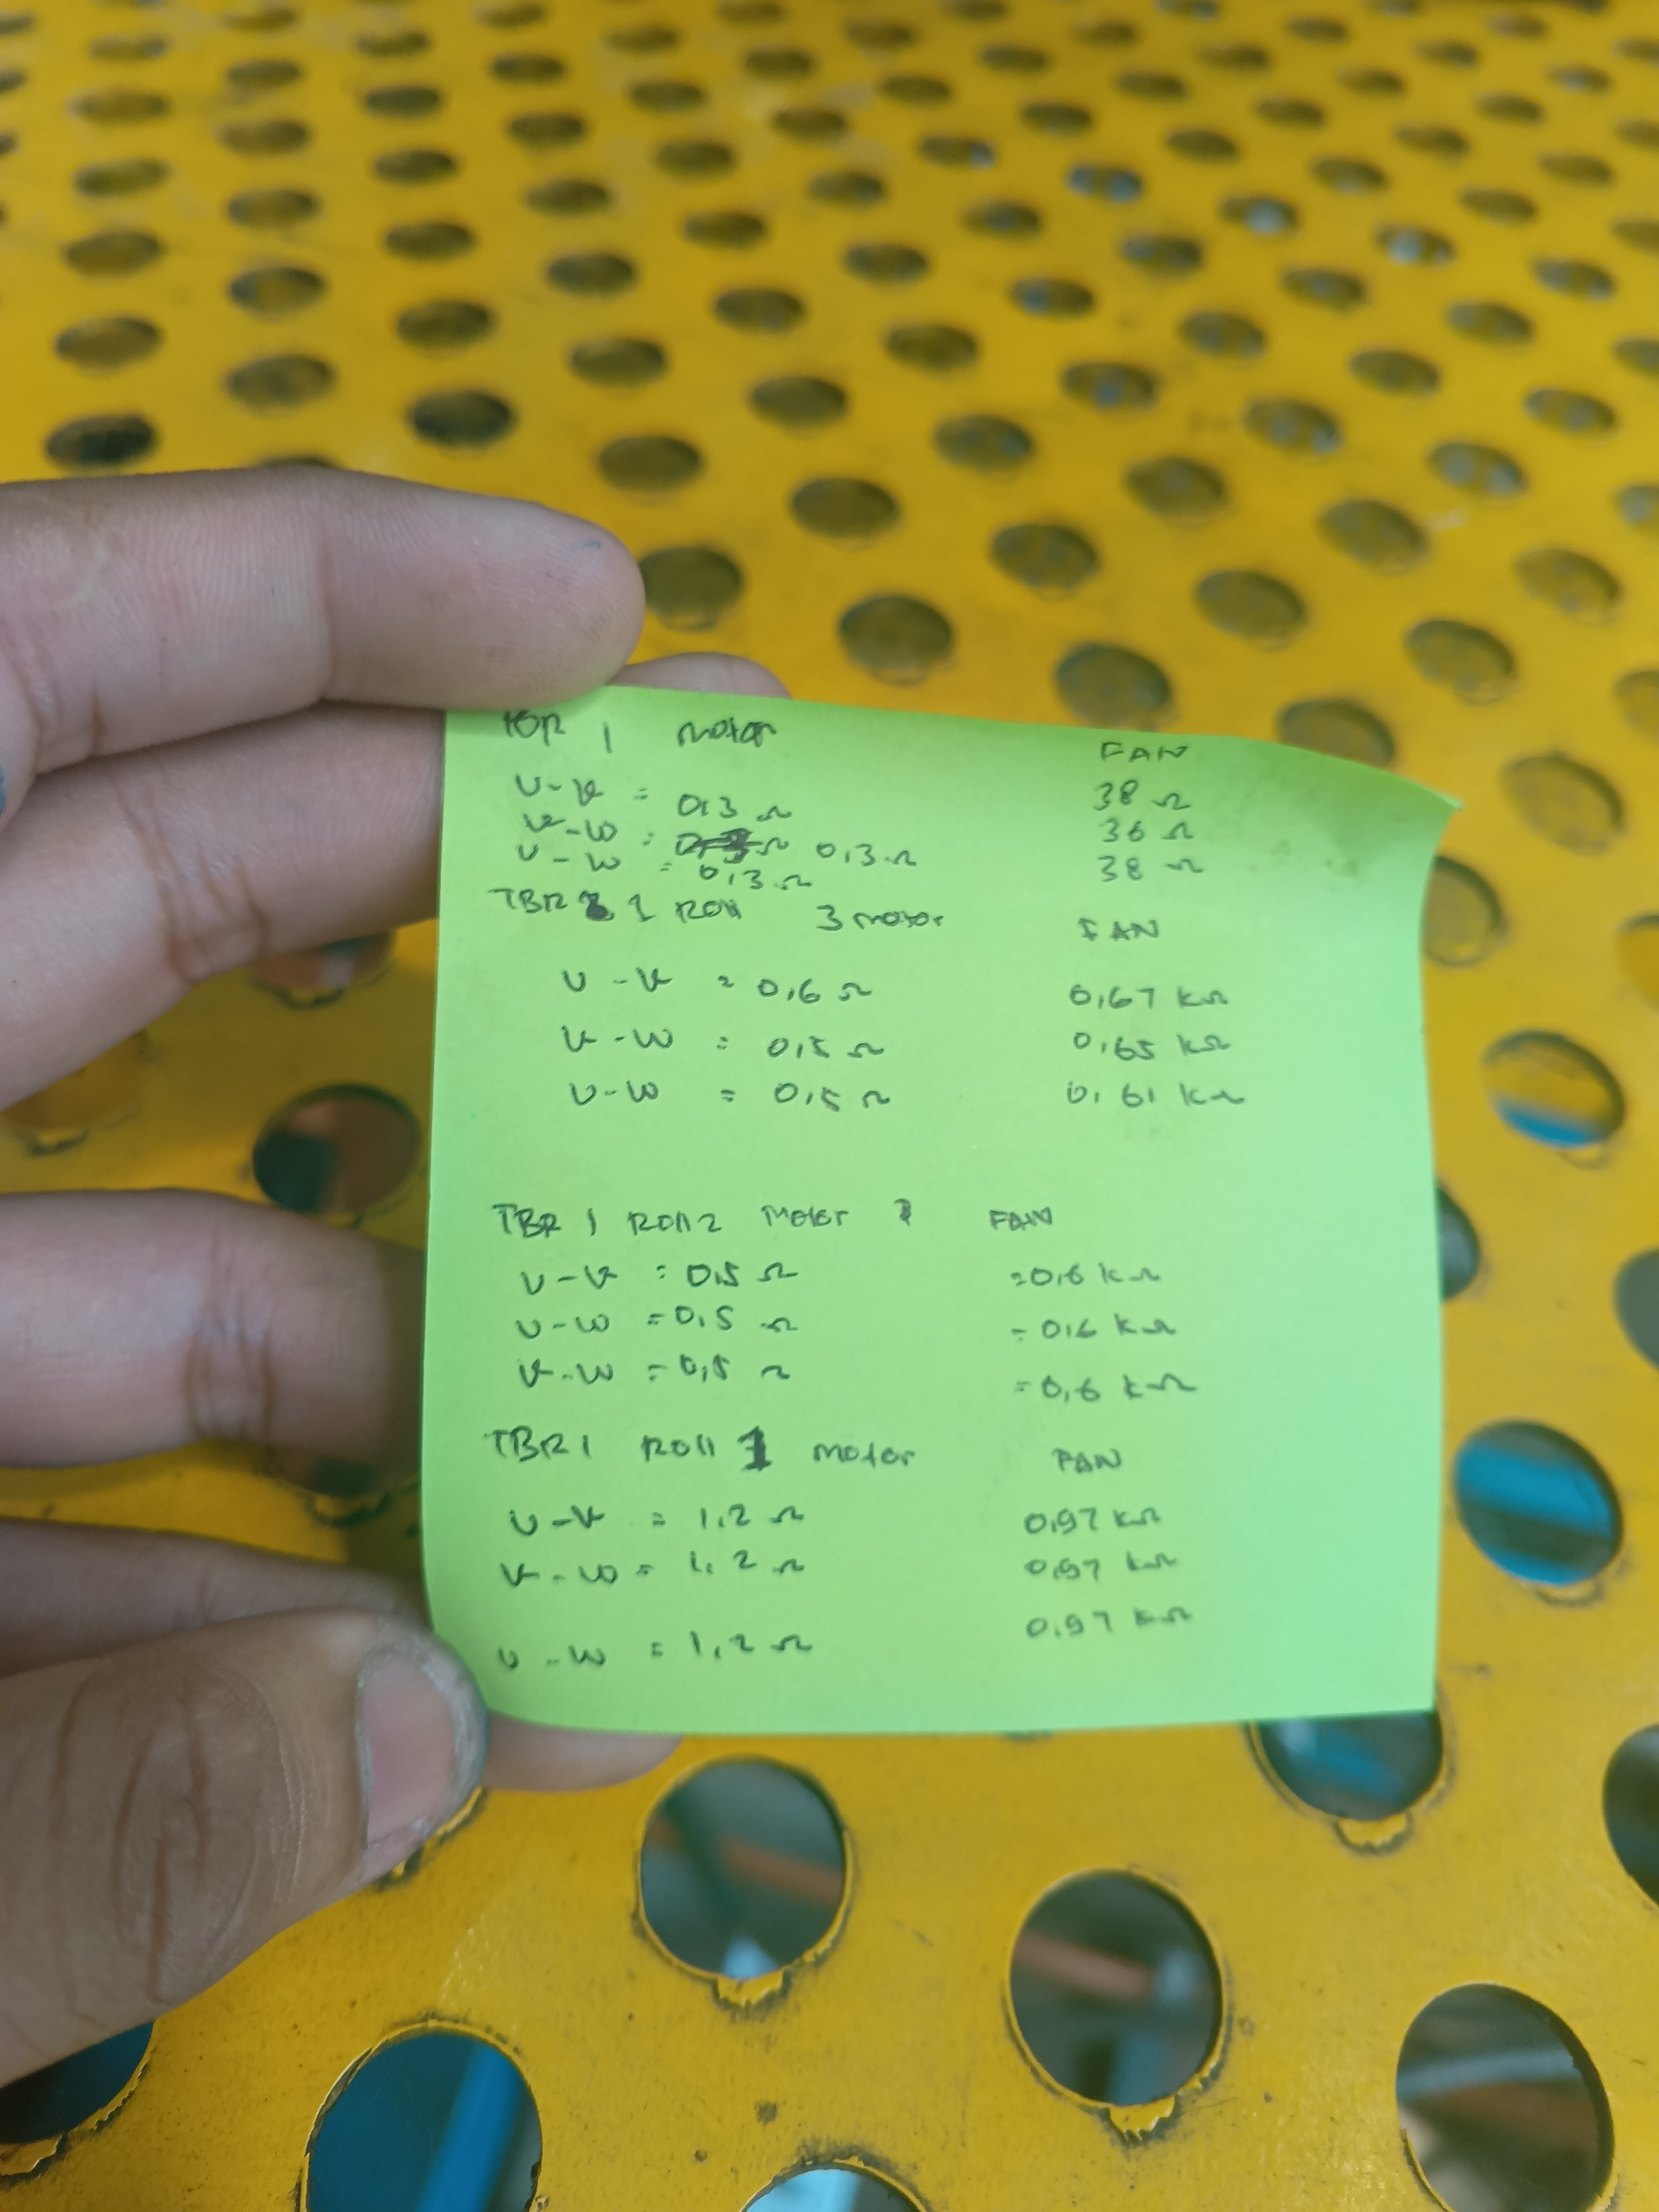 TBR 1 Motor FAN
U-V = 0,3 Ω 38 Ω
V-W = 0,3 Ω 36 Ω
U-W = 0,3 Ω 38 Ω
TBR 1 Roll 3 motor FAN
U-V = 0,6 Ω 0,67 kΩ
V-W = 0,5 Ω 0,65 kΩ
U-W = 0,5 Ω 0,61 kΩ
TBR 1 Roll 2 Motor FAN
U-V = 0,5 Ω = 0,6 kΩ
U-W = 0,5 Ω = 0,6 kΩ
V-W = 0,5 Ω = 0,6 kΩ
TBR 1 Roll 1 motor FAN
U-V = 1,2 Ω 0,97 kΩ
V-W = 1,2 Ω 0,97 kΩ
U-W = 1,2 Ω 0,97 kΩ